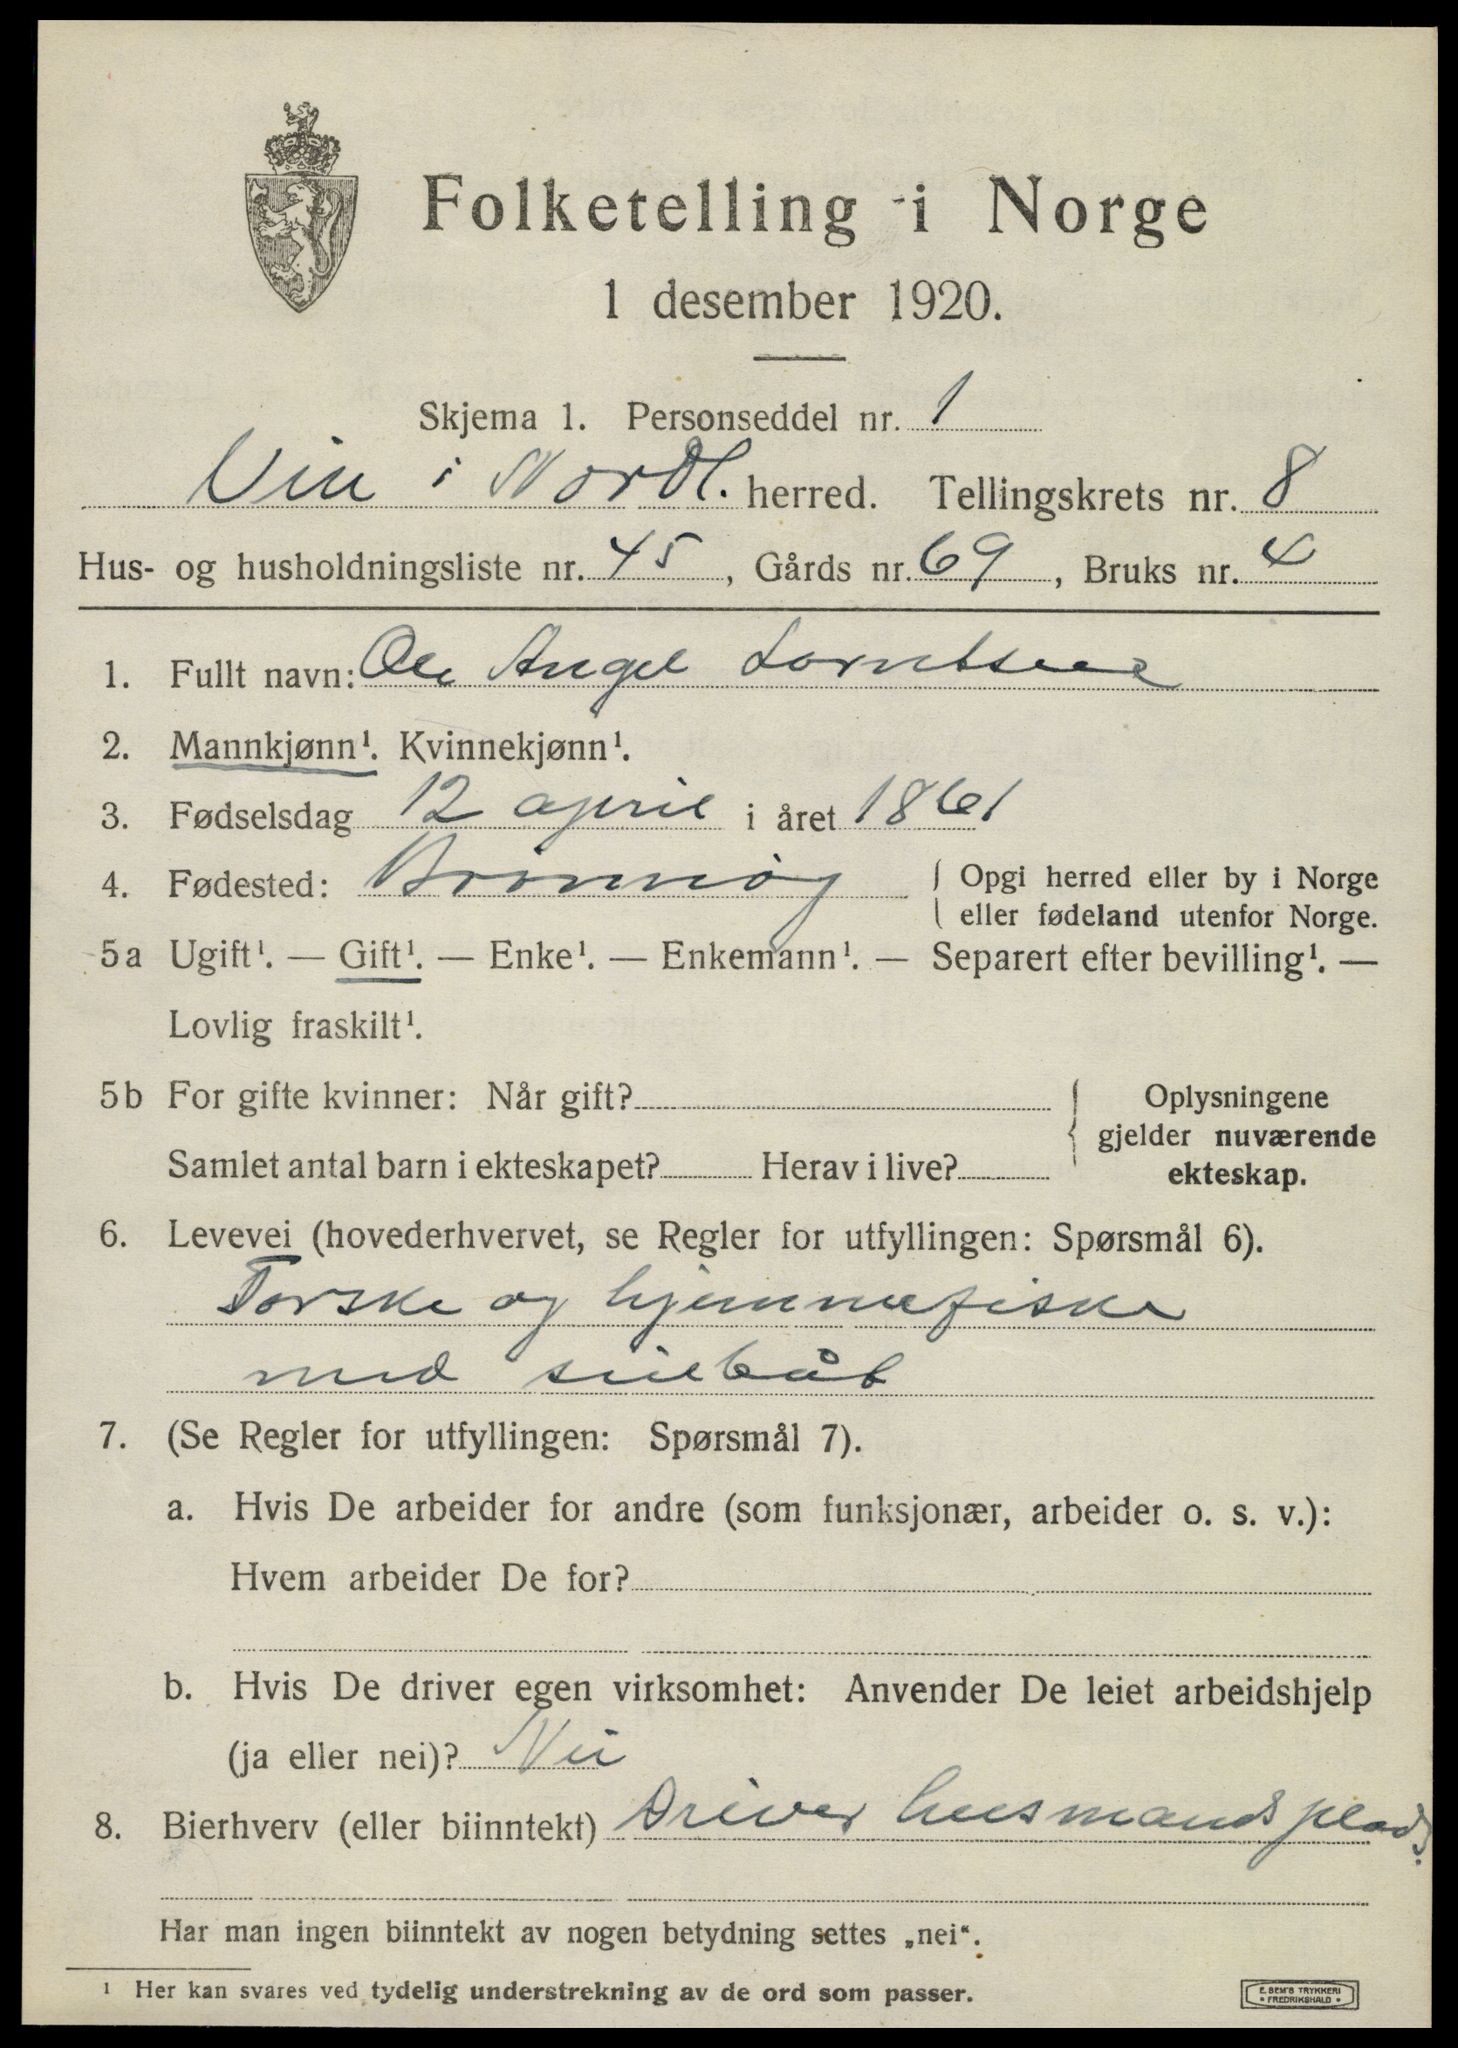 Folketelling i Norge
1 desember 1920.
Skjema 1. Personseddel nr. 1
Vik i Nordl. herred. Tellingskrets nr. 8
Hus- og husholdningsliste nr. 45, Gårds nr. 69, Bruks nr. 4
1. Fullt navn: Ole Angel Lorntsen
2. Mannkjønn¹. Kvinnekjønn¹.
3. Fødselsdag 12 april i året 1861
4. Fødested: Brønnøy { Opgi herred eller by i Norge
eller fødeland utenfor Norge.
5a Ugift¹. — Gift¹. — Enke¹. — Enkemann¹. — Separert efter bevilling¹. —
Lovlig fraskilt¹.
5b For gifte kvinner: Når gift? { Oplysningene
gjelder nuværende
Samlet antal barn i ekteskapet? Herav i live? ekteskap.
6. Levevei (hovederhvervet, se Regler for utfyllingen: Spørsmål 6).
Torske og hjemmefiske
med seilbåt
7. (Se Regler for utfyllingen: Spørsmål 7).
a. Hvis De arbeider for andre (som funksjonær, arbeider o. s. v.):
Hvem arbeider De for?
b. Hvis De driver egen virksomhet: Anvender De leiet arbeidshjelp
(ja eller nei)? Nei
8. Bierhverv (eller biinntekt) Driver husmandsplads.
Har man ingen biinntekt av nogen betydning settes „nei“.
¹ Her kan svares ved tydelig understrekning av de ord som passer.
E. SEM'S TRYKKERI
• FREDRIKSHALD •